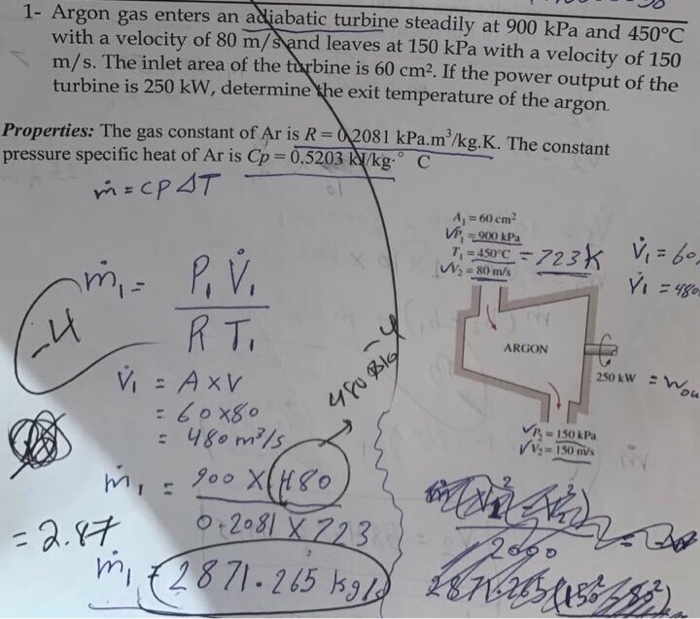 1- Argon gas enters an adiabatic turbine steadily at 900 kPa and 450°C
with a velocity of 80 m/s and leaves at 150 kPa with a velocity of 150
m/s. The inlet area of the turbine is 60 cm². If the power output of the
turbine is 250 kW, determine the exit temperature of the argon.
Properties: The gas constant of Ar is R = 0.2081 kPa.m³/kg.K. The constant
pressure specific heat of Ar is Cp = 0.5203 kJ/kg.° C
ṁ = CP ΔT
A₁ = 60 cm²
P₁ = 900 kPa
T₁ = 450°C = 723K
V₂ = 80 m/s
V̇₁ = 60
V̇₁ = 480
ṁ₁ = P₁ V̇₁
R T₁
-4
ARGON
250 kW = Wou
P₂ = 150 kPa
V₂ = 150 m/s
V̇₁ = A x V
= 60 x 80
= 480 m³/s
480 Big -4
ṁ₁ = 900 X 480
0.2081 X 723
= 2.87
ṁ₁ = 2871.265 kg/s
2000
2871.265 (150² - 80²)